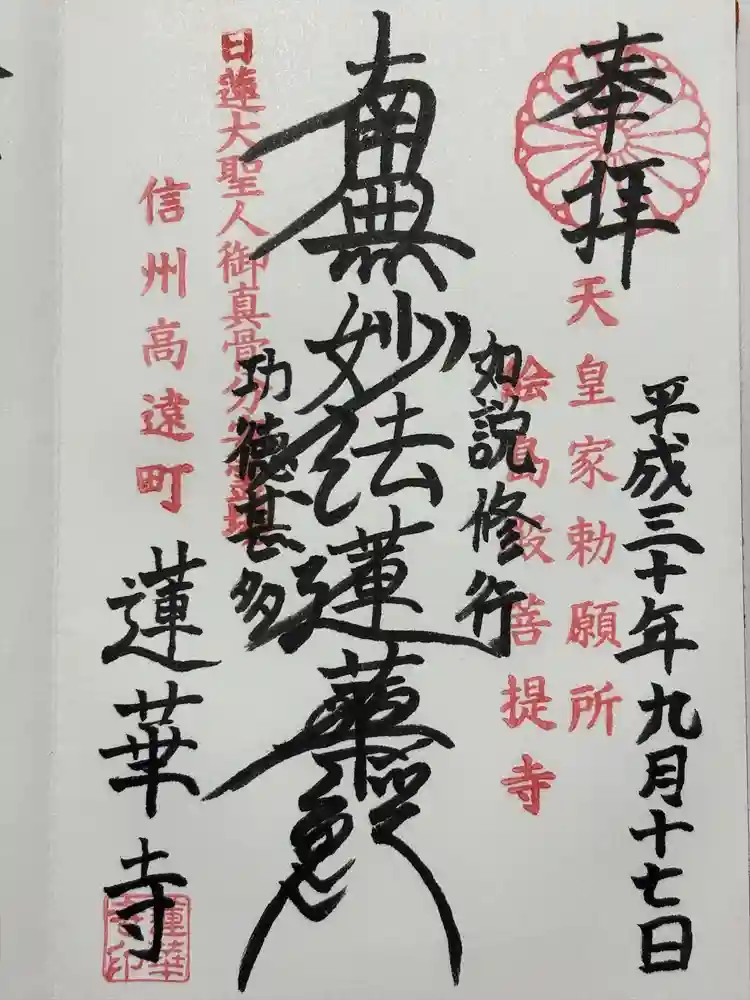 奉拝
平成三十年九月十七日
天皇家勅願所
絵島殿菩提寺
如説修行
南無妙法蓮華経
功徳甚多
日蓮大聖人御真骨分
信州高遠町
蓮華寺
蓮華
寺印